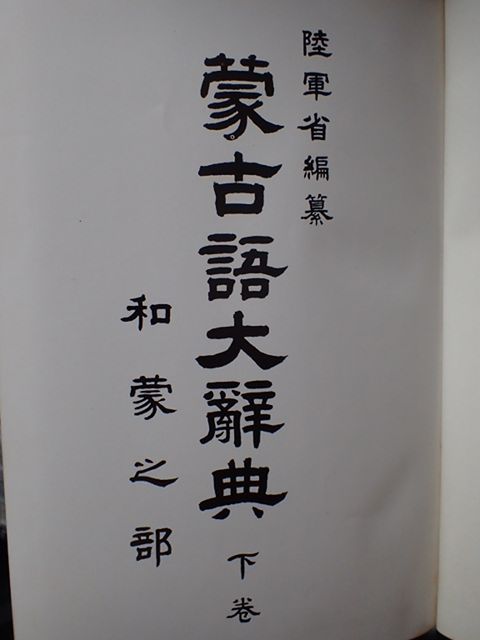 陸軍省編纂
蒙古語大辭典 下卷
和蒙之部